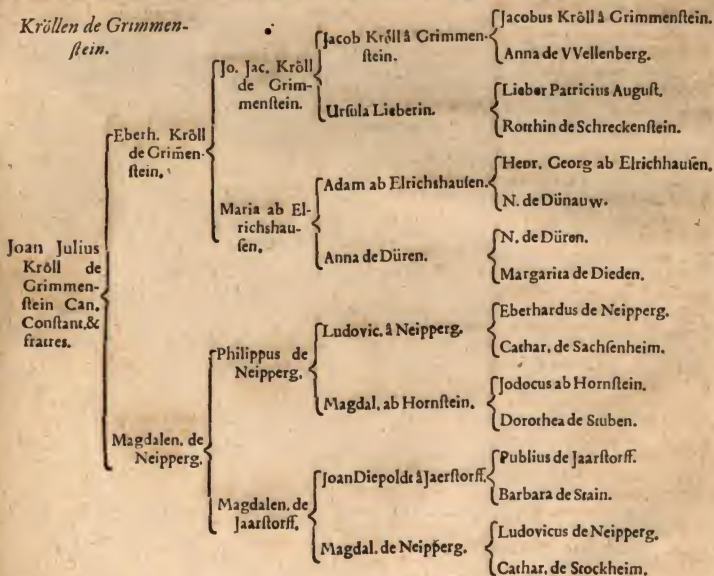 Kröllen de Grimmen-
ſtein.
Joan Julius
Kröll de
Grimmen-
ſtein Can.
Conſtant.&
fratres.
Eberh. Kröll
de Grim̃en-
ſtein.
Magdalen. de
Neipperg.
Jo. Jac. Kröll
de Grim-
menſtein.
Maria ab El-
richshau-
ſen.
Philippus de
Neipperg.
Magdalen. de
Jaarſtorff.
Jacob Kröll â Grimmen-
ſtein.
Urſula Lieberin.
Adam ab Elrichshauſen.
Anna de Düren.
Ludovic. â Neipperg.
Magdal. ab Hornſtein.
Joan Diepoldt â Jaerſtorff.
Magdal. de Neipperg.
Jacobus Kröll â Grimmenſtein.
Anna de VVellenberg.
Lieber Patricius Auguſt.
Rotthin de Schreckenſtein.
Henr. Georg ab Elrichhauſen.
N. de Dünauw.
N. de Düren.
Margarita de Dieden.
Eberhardus de Neipperg.
Cathar. de Sachſenheim.
Jodocus ab Hornſtein.
Dorothea de Stuben.
Publius de Jaarſtorff.
Barbara de Stain.
Ludovicus de Neipperg.
Cathar. de Stockheim.